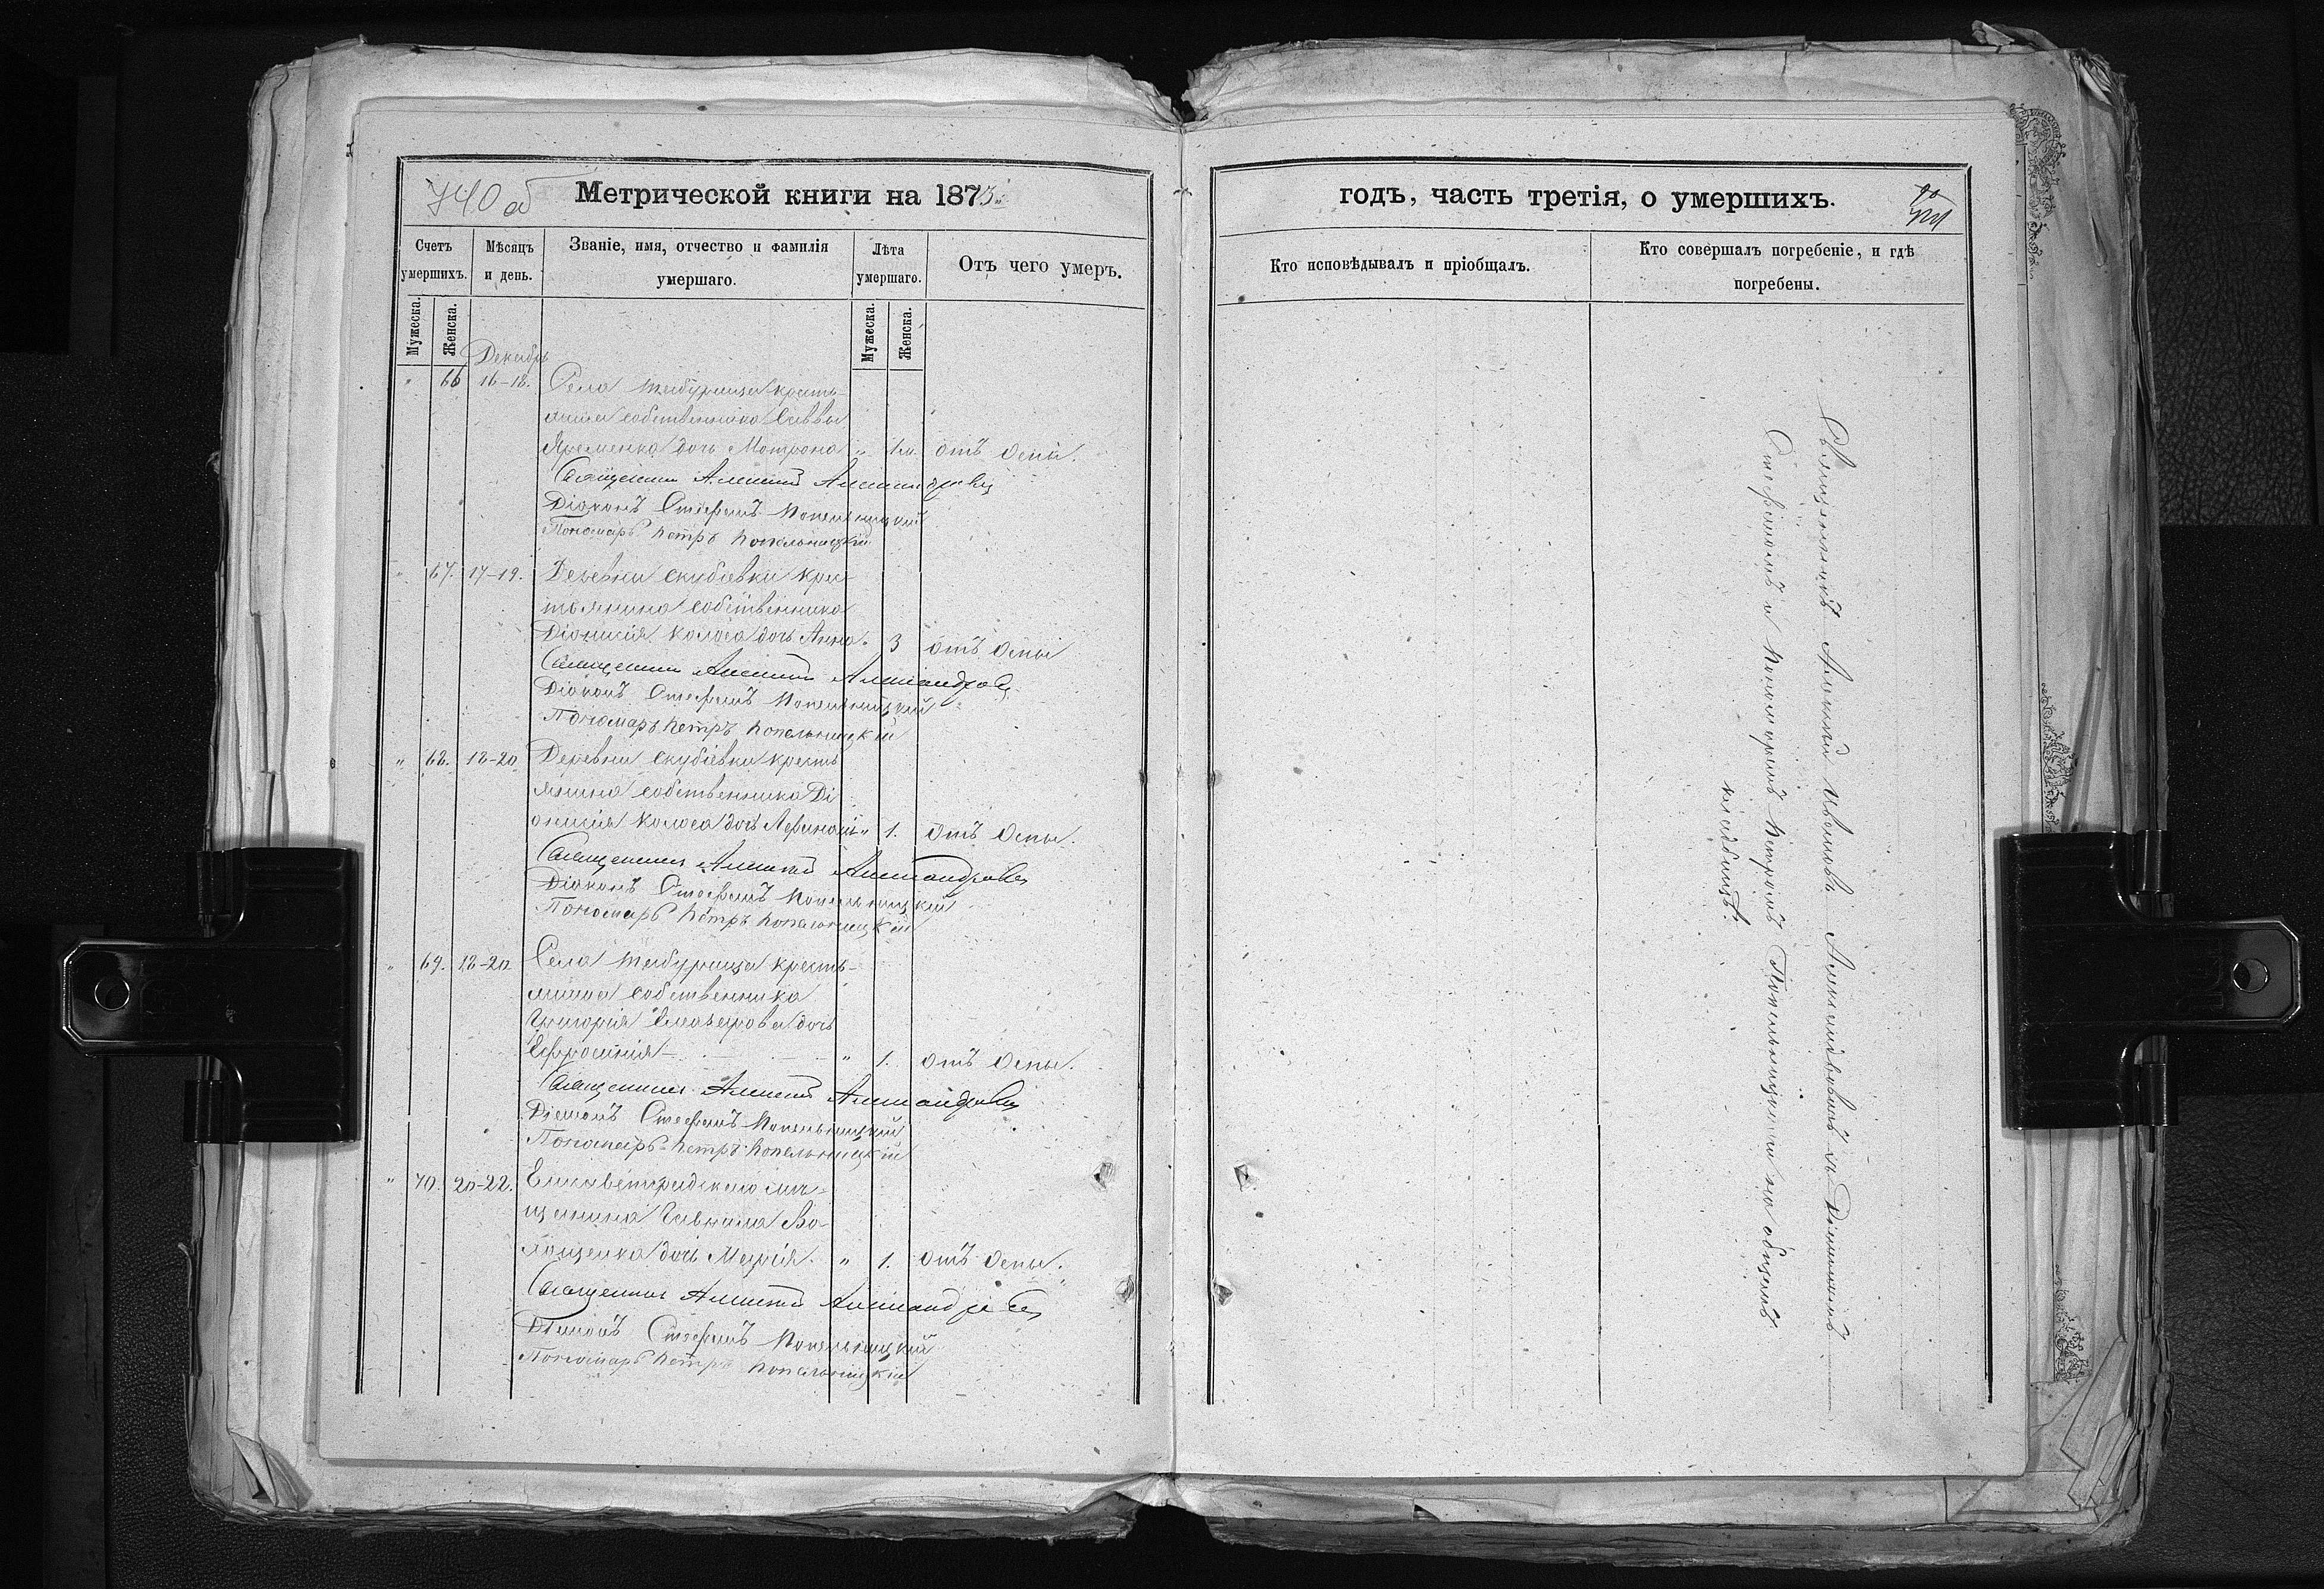 740 об
Метрической книги на 1873
Счетъ умершихъ.
Мѣсяцъ и день.
Званіе, имя, отчество и фамилія умершаго.
Лѣта умершаго.
Отъ чего умеръ.
Мужеска.
Женска.
Мужеска.
Женска.
Декабрь
" 66 16-18. Села крестья-
нина собственника Саввы
Яременка дочь Мотрона " 1м. отъ оспы.
Священникъ Алексій Александровъ
Діаконъ Стефанъ Копельницкій
Пономарь Петръ Копельницкій
" 67. 17-19. Деревни Скубіевки крес-
тьянина собственника
Діонисія Колоса дочь Анна " 3 отъ оспы
Священникъ Алексій Александровъ
Діаконъ Стефанъ Копельницкій
Пономарь Петръ Копельницкій
" 68. 18-20 Деревни Скубіевки кресть
янина собственника Ді
онисія Колоса дочь " 1. отъ оспы.
Священникъ Алексій Александровъ
Діаконъ Стефанъ Копельницкій
Пономарь Петръ Копельницкій
" 69. 18-20 Села кресть-
янина собственника
Григорія дочь
Ефросинія " 1. отъ оспы.
Священникъ Алексій Александровъ
Діаконъ Стефанъ Копельницкій
Пономарь Петръ Копельницкій
" 70. 20-22. Елисаветградскаго мѣ-
щанина Во-
лощенка дочь Марія. " 1. отъ оспы.
Священникъ Алексій Александровъ
Діаконъ Стефанъ Копельницкій
Пономарь Петръ Копельницкій
годъ, часть третія, о умершихъ.
Кто исповѣдывалъ и пріобщалъ.
Кто совершалъ погребеніе, и гдѣ погребены.
Священникъ Алексій Ивановъ Александровъ съ Діакономъ
Стефаномъ и Пономаремъ Петромъ Копельницкими на общемъ
кладбищѣ.